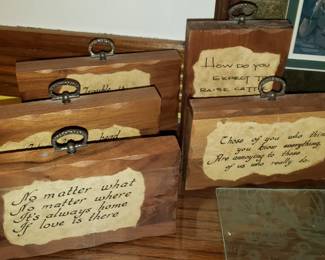 How do you
expect to
raise catt
Trouble is
hard
Those of you who thi
you know everything,
Are annoying to those
of us who really do.
No matter what
No matter where
It's always home
If love is there